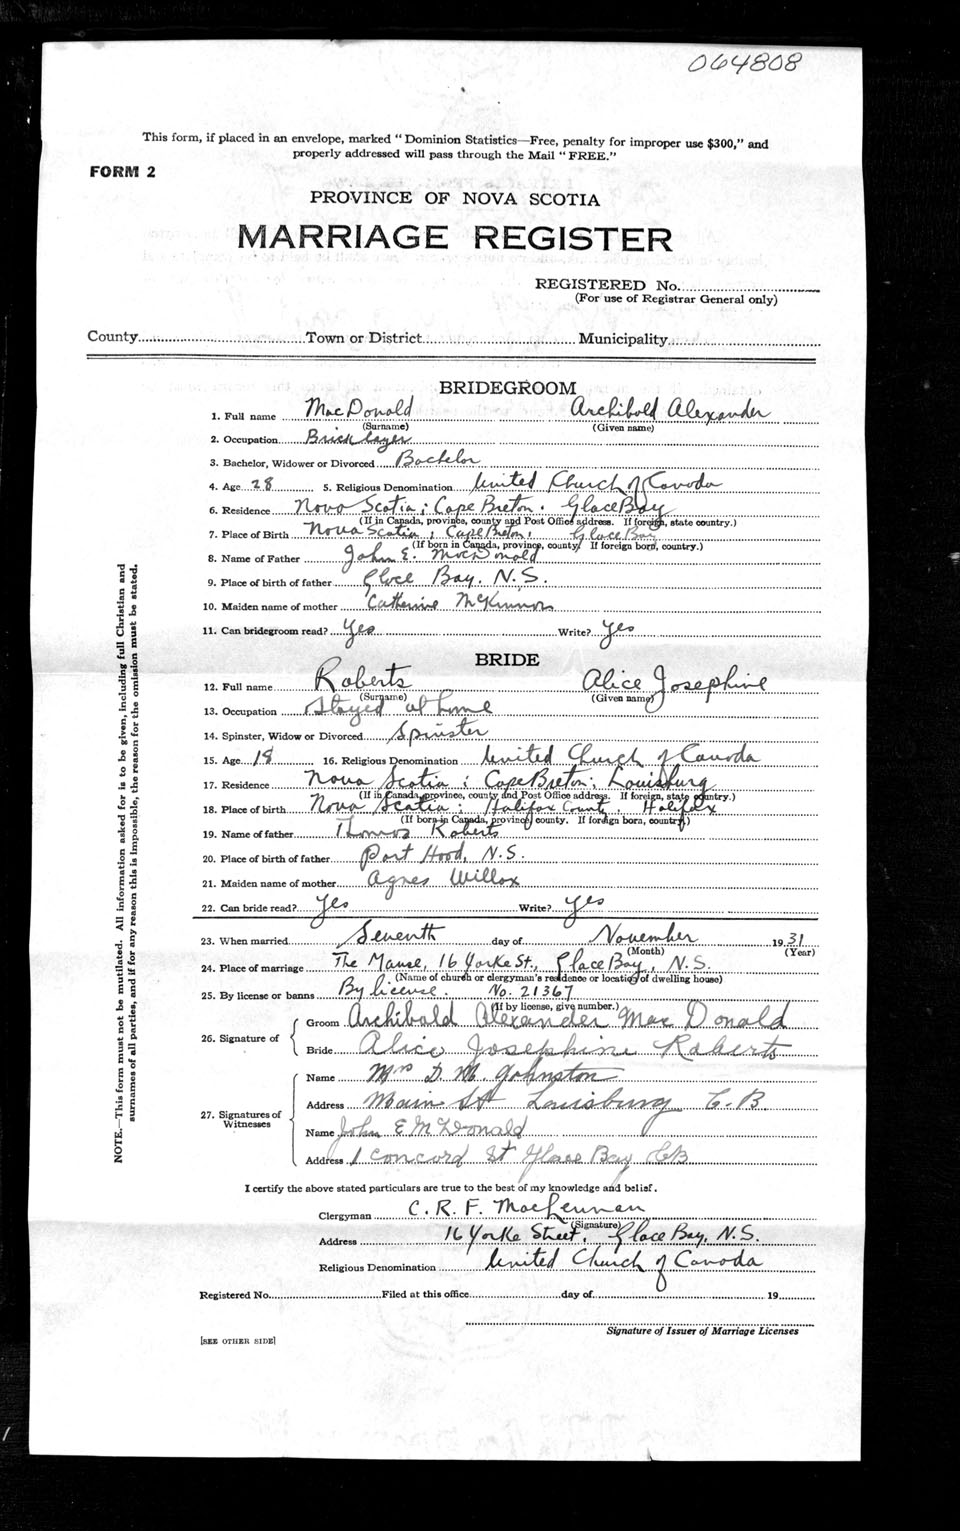 064808
This form, if placed in an envelope, marked "Dominion Statistics—Free, penalty for improper use $300," and
properly addressed will pass through the Mail "FREE."
FORM 2
PROVINCE OF NOVA SCOTIA
MARRIAGE REGISTER
REGISTERED No.
(For use of Registrar General only)
County Town or District Municipality
BRIDEGROOM
1. Full name MacDonald Archibald Alexander
(Surname) (Given name)
2. Occupation Bricklayer
3. Bachelor, Widower or Divorced Bachelor
4. Age 28 5. Religious Denomination United Church of Canada
6. Residence Nova Scotia; Cape Breton. Glace Bay
(If in Canada, province, county and Post Office address. If foreign, state country.)
7. Place of Birth Nova Scotia; Cape Breton; Glace Bay
(If born in Canada, province, county. If foreign born, country.)
8. Name of Father John E. MacDonald
9. Place of birth of father Glace Bay. N.S.
10. Maiden name of mother Catherine McKinnon
11. Can bridegroom read? Yes Write? Yes
BRIDE
12. Full name Roberts Alice Josephine
(Surname) (Given name)
13. Occupation Stayed at home
14. Spinster, Widow or Divorced Spinster
15. Age 18 16. Religious Denomination United Church of Canada
17. Residence Nova Scotia; Cape Breton; Louisburg
(If in Canada, province, county and Post Office address. If foreign, state country.)
18. Place of birth Nova Scotia; Halifax County Halifax
(If born in Canada, province, county. If foreign born, country.)
19. Name of father Thomas Roberts
20. Place of birth of father Port Hood, N.S.
21. Maiden name of mother Agnes Willox
22. Can bride read? Yes Write? Yes
23. When married Seventh day of November 1931
(Month) (Year)
24. Place of marriage The Manse, 16 Yorke St., Glace Bay, N.S.
(Name of church or clergyman's residence or location of dwelling house)
25. By license or banns By license. No. 21367
(If by license, give number.)
26. Signature of Groom Archibald Alexander MacDonald
Bride Alice Josephine Roberts
27. Signatures of Witnesses Name Mrs D. M. Johnston
Address Main St Louisburg C.B.
Name John E McDonald
Address 1 Concord St Glace Bay CB
NOTE.—This form must not be mutilated. All information asked for is to be given, including full Christian and
surnames of all parties, and if for any reason this is impossible, the reason for the omission must be stated.
I certify the above stated particulars are true to the best of my knowledge and belief.
Clergyman C. R. F. MacLennan
(Signature)
Address 16 Yorke Street, Glace Bay, N.S.
Religious Denomination United Church of Canada
Registered No. Filed at this office day of 19
Signature of Issuer of Marriage Licenses
[SEE OTHER SIDE]